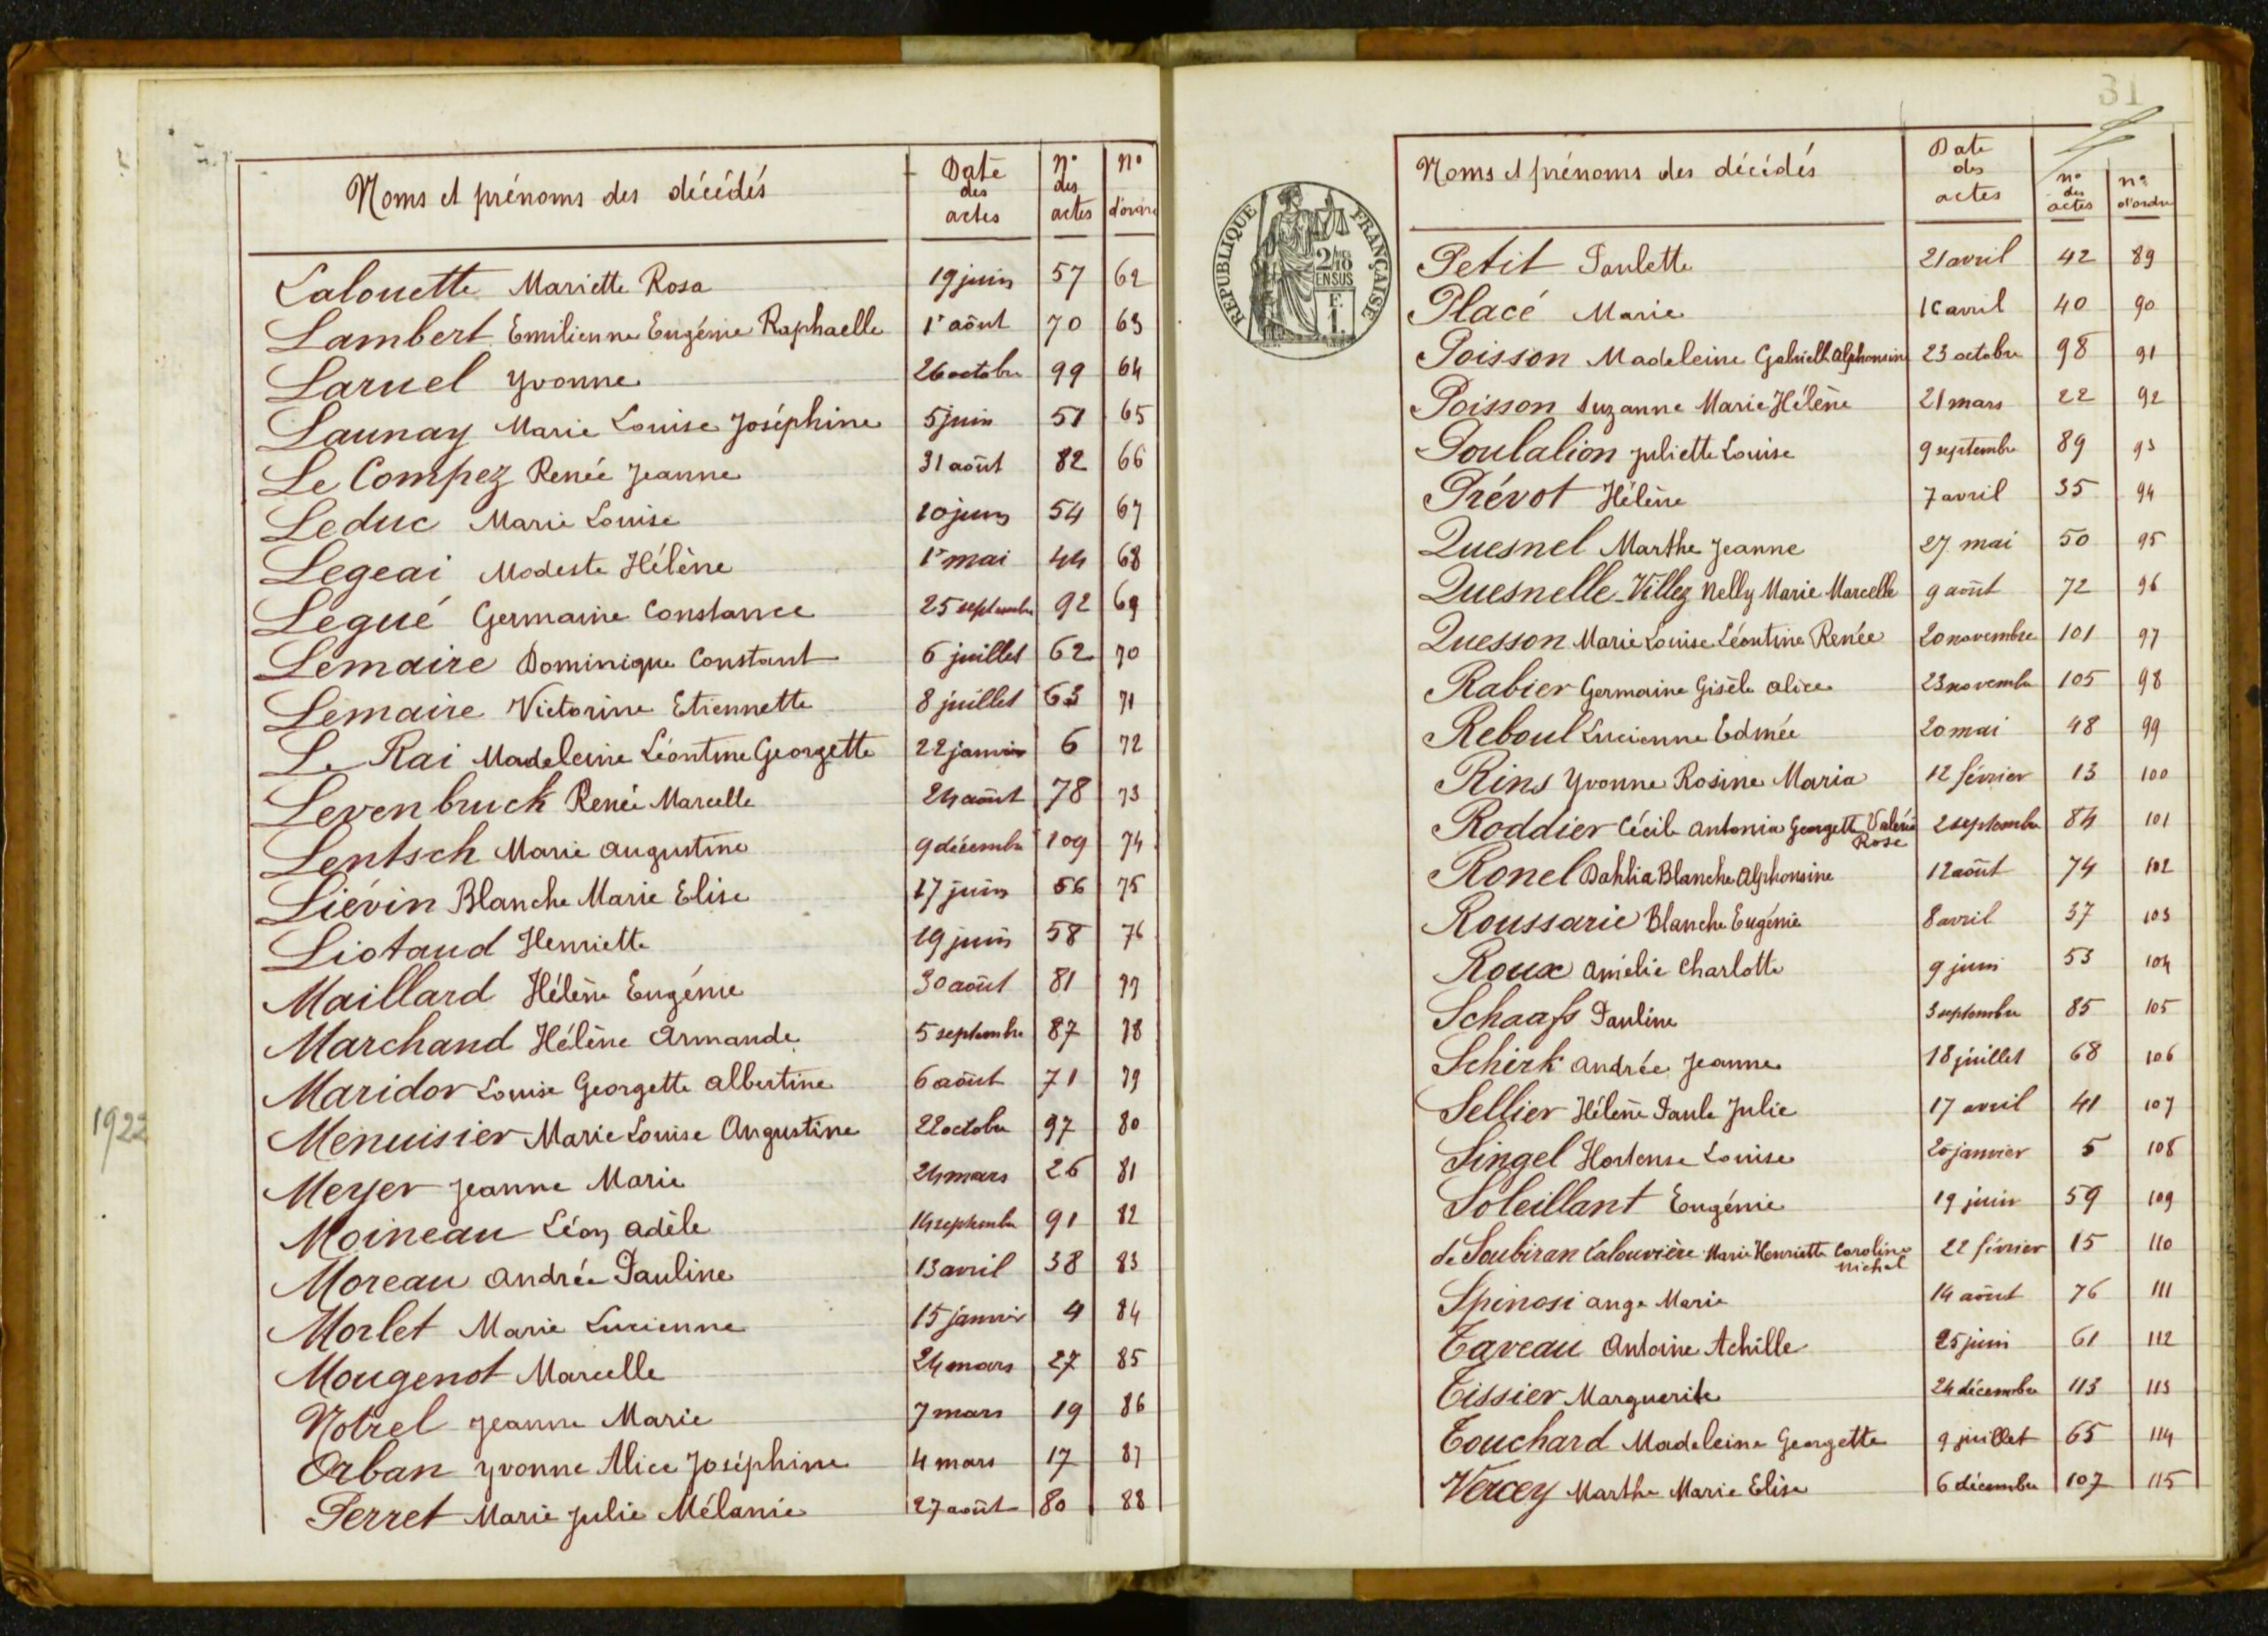 Noms et prénoms des décédés | Date des actes | N° des actes | N° d'ordre
Lalouette Mariette Rosa | 19 juin | 57 | 62
Lambert Emilienne Eugénie Raphaelle | 1er août | 70 | 63
Laruel Yvonne | 26 octobre | 99 | 64
Launay Marie Louise Joséphine | 5 juin | 51 | 65
Le Compez Renée Jeanne | 31 août | 82 | 66
Leduc Marie Louise | 10 juin | 54 | 67
Legeai Modeste Hélène | 1er mai | 44 | 68
Legué Germaine Constance | 25 septembre | 92 | 69
Lemaire Dominique Constant | 6 juillet | 62 | 70
Lemaire Victorine Etiennette | 8 juillet | 63 | 71
Le Rai Madeleine Léontine Georgette | 22 janvier | 6 | 72
Levenbruck Renée Marcelle | 24 août | 78 | 73
Lentsch Marie Augustine | 9 décembre | 109 | 74
Liévin Blanche Marie Elise | 17 juin | 56 | 75
Liotaud Henriette | 19 juin | 58 | 76
Maillard Hélène Eugénie | 30 août | 81 | 77
Marchand Hélène Armande | 5 septembre | 87 | 78
Maridor Louise Georgette Albertine | 6 août | 71 | 79
1922
Menuisier Marie Louise Augustine | 22 octobre | 97 | 80
Meyer Jeanne Marie | 24 mars | 26 | 81
Moineau Léon Adèle | 14 septembre | 91 | 82
Moreau Andrée Pauline | 13 avril | 38 | 83
Morlet Marie Lucienne | 15 janvier | 4 | 84
Mougenot Marcelle | 24 mars | 27 | 85
Notrel Jeanne Marie | 7 mars | 19 | 86
Orban Yvonne Alice Joséphine | 4 mars | 17 | 87
Perret Marie Julie Mélanie | 27 août | 80 | 88
31
RÉPUBLIQUE FRANÇAISE
2/10 EN SUS
F. 1.
Noms et prénoms des décédés | Date des actes | n° des actes | n° d'ordre
Petit Paulette | 21 avril | 42 | 89
Placé Marie | 16 avril | 40 | 90
Poisson Madeleine Gabrielle Alphonsine | 23 octobre | 98 | 91
Poisson Suzanne Marie Hélène | 21 mars | 22 | 92
Poulalion Juliette Louise | 9 septembre | 89 | 93
Prévot Hélène | 7 avril | 35 | 94
Quesnel Marthe Jeanne | 27 mai | 50 | 95
Quesnelle-Villez Nelly Marie Marcelle | 9 août | 72 | 96
Quesson Marie Louise Léontine Renée | 20 novembre | 101 | 97
Rabier Germaine Gisèle Alice | 23 novembre | 105 | 98
Reboul Lucienne Edmée | 20 mai | 48 | 99
Rins Yvonne Rosine Maria | 12 février | 13 | 100
Roddier Cécile Antonia Georgette Valérie Rose | 2 septembre | 84 | 101
Ronel Dahlia Blanche Alphonsine | 12 août | 74 | 102
Roussarie Blanche Eugénie | 8 avril | 37 | 103
Roux Amélie Charlotte | 9 juin | 53 | 104
Schaafs Pauline | 3 septembre | 85 | 105
Schirk Andrée Jeanne | 18 juillet | 68 | 106
Sellier Hélène Paule Julie | 17 avril | 41 | 107
Singel Hortense Louise | 20 janvier | 5 | 108
Soleillant Eugénie | 19 juin | 59 | 109
de Soubiran Lalouvière Marie Henriette Caroline Michel | 22 février | 15 | 110
Spinosi Ange Marie | 14 août | 76 | 111
Taveau Antoine Achille | 25 juin | 61 | 112
Tissier Marguerite | 24 décembre | 113 | 113
Touchard Madeleine Georgette | 9 juillet | 65 | 114
Vercey Marthe Marie Elise | 6 décembre | 107 | 115